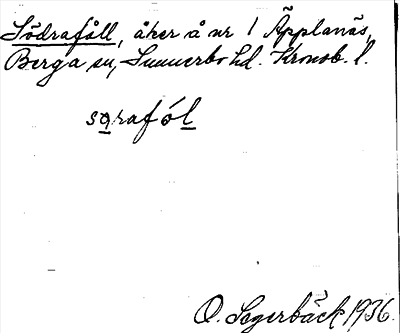 Södrafåll, åker å nr 1 Äpplanäs,
Berga sn, Sunnerbo hd. Kronob. l.
sarafól
O. Segerbäck 1936.